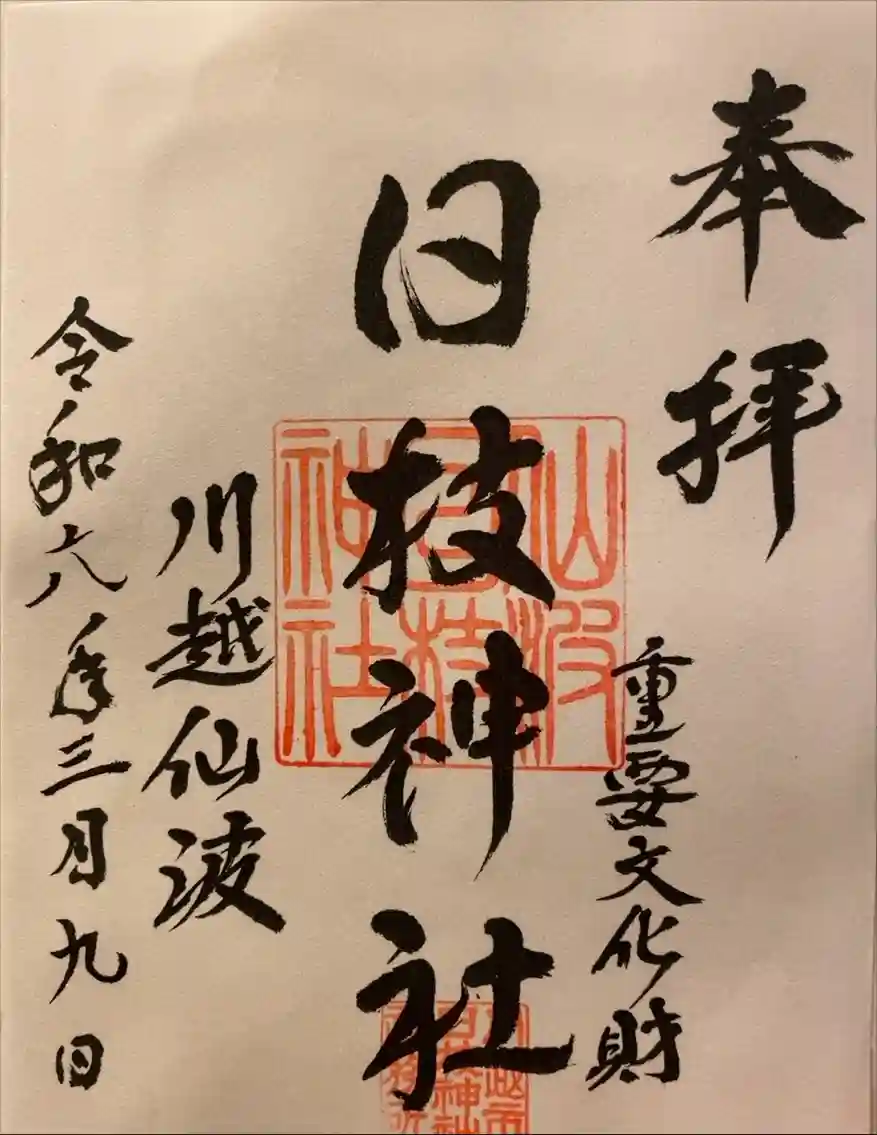 奉拝
重要文化財
日枝神社
仙波
日枝
神社
川越仙波
令和六年三月九日